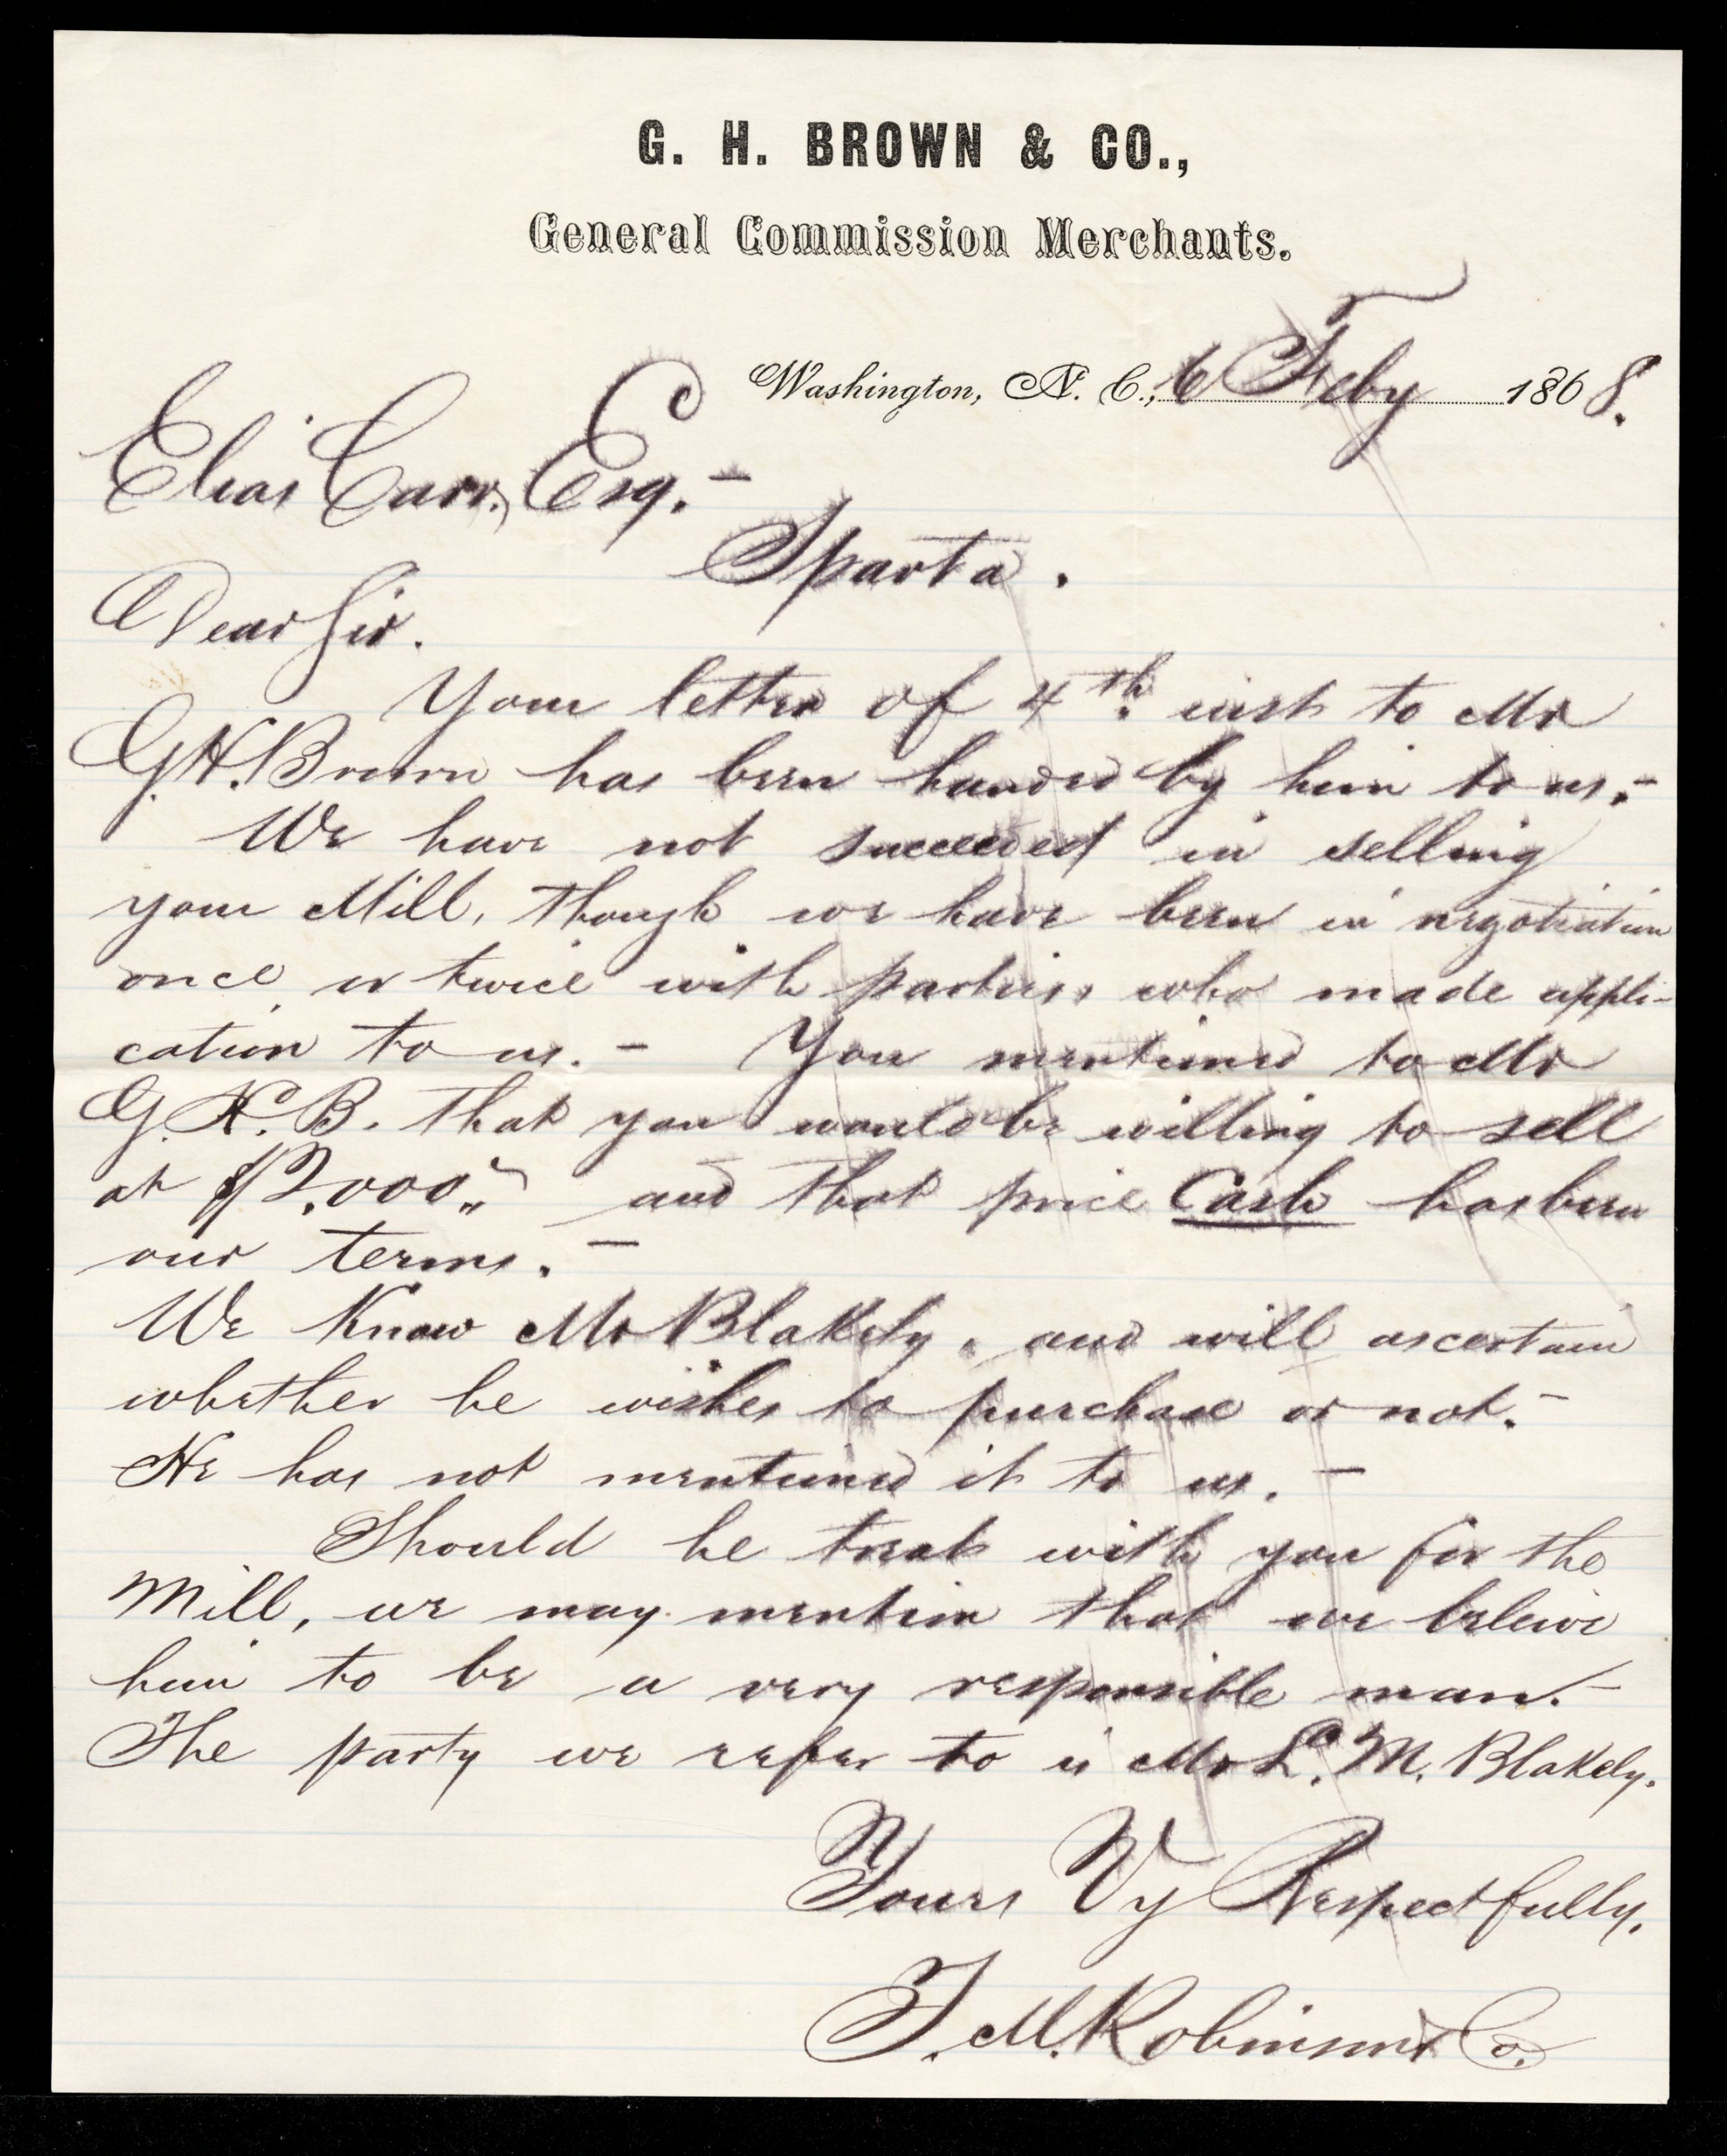 G. H. BROWN & CO.,
General Commission Merchants.
Washington, N. C., 6 Feby 1868.
Elias Carr, Esq. -
Sparta.
Dear Sir.
Your letter of 4th. inst to Mr
G. H. Brown has been handed by him to us. -
We have not succeeded in selling
your Mill, though we have been in negotiation
once or twice with parties, who made appli-
cation to us. - You mentioned to Mr
G. H. B. that you would be willing to sell
at $2,000" and that price Cash has been
our terms. -
We Know Mr Blakely, and will ascertain
whether he wishes to purchase or not. -
He has not mentioned it to us. -
Should he treat with you for the
Mill, we may mention that we beleive
him to be a very responsible man. -
The party we refer to is Mr L. M. Blakely.
Yours Vy Respectfully,
T. M. Robinson & Co.